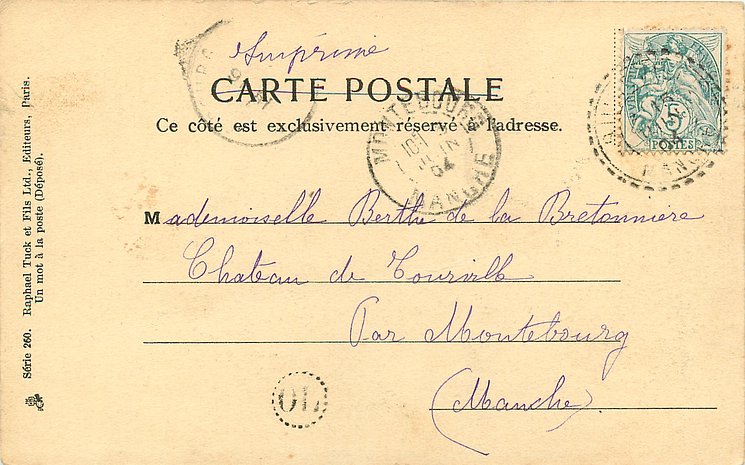 Imprimé
CARTE POSTALE
Ce côté est exclusivement réservé à l'adresse.
MONTEBOURG
MANCHE
5
POSTES
MANCHE
Mademoiselle Berthe de la Bretonniere
Chateau de Tourville
Par Montebourg
(Manche)
OL
Série 260. Raphael Tuck et Fils Ltd., Editeurs, Paris.
Un mot à la poste (Déposé).